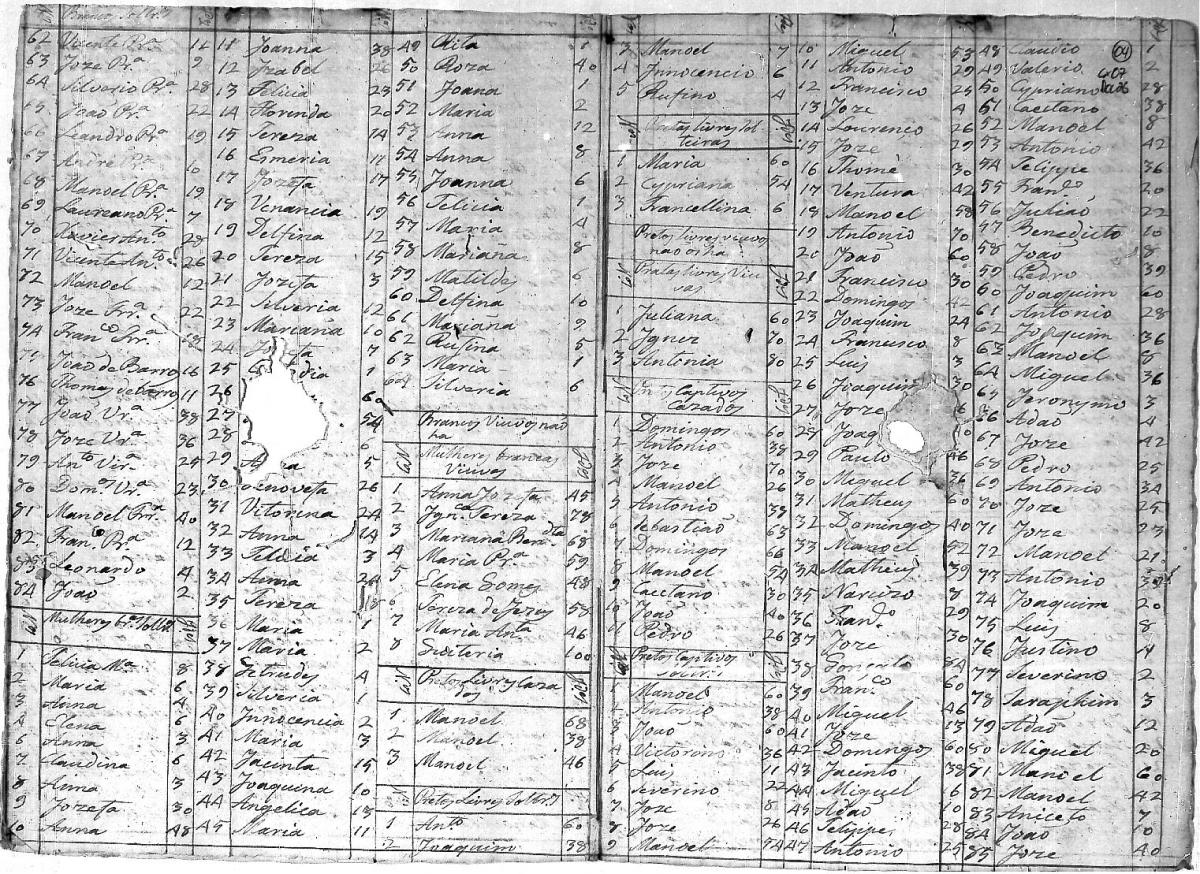 Brancos Soltr.os
62 Vicente Pr.a 14
63 Joze Pr.a 9
64 Silverio Pr.a 28
65 Joaõ Pr.a 22
66 Leandro Pr.a 19
67 André Pr.a
68 Manoel Pr.a 19
69 Laureano Pr.a 7
70 Xavier An.to 28
71 Vicente An.to 26
72 Manoel 12
73 Joze Frr.a 22
74 Fran.co Frr.a
75 Joaõ de Barro 16
76 Thomas de Barro 11
77 Joaõ Vr.a 38
78 Joze Vr.a 36
79 An.to Vir.a 25
80 Dom.os Vr.a 23
81 Manoel Frr.a 40
82 Fran.co Pr.a 12
83 Leonardo 4
84 Joaõ 2
Mulheres Br.as Soltr.as
1 Felicia M.a 8
2 Maria 6
3 Anna 4
4 Elena 6
6 Anna 3
7 Claudina 6
8 Anna 3
9 Jozefa 30
10 Anna 48
11 Joanna 38
12 Izabel 26
13 Felicia 23
14 Florinda 20
15 Tereza 14
16 Esmeria 11
17 Jozefa 17
18 Venancia 19
19 Delfina 12
20 Tereza 15
21 Jozefa 3
22 Silveria 12
23 Mariana 10
24 7
25 1
26
27
28 6
29 5
30 Genoveta 26
31 Vitorina 24
32 Anna 14
33 Felicia 3
34 Anna 24
35 Tereza 18
36 Maria 1
37 Maria 2
38 Getrudes 4
39 Silveria 1
40 Innocencia 2
41 Maria 3
42 Jacinta 15
43 Joaquina 10
44 Angelica 13
45 Maria 11
49 Rita 1
50 Roza 40
51 Joana 1
52 Maria 2
53 Anna 12
54 Anna 8
55 Joanna 6
56 Felicia 1
57 Maria 4
58 Mariana 8
59 Matildes 6
60 Delfina 10
61 Mariana 9
62 Rufina 5
63 Maria 1
64 Silveria 6
Brancos Viuvos naõ ha
Mulheres brancas Viuvas
1 Anna Jozefa 45
2 Ign.ca Tereza 78
3 Mariana Bendta 68
4 Maria Pr.a 59
5 Elena Gomes 48
6 Tereza de Jezus 58
7 Maria Anta 46
8 Quiteria 100
Pretos Livres Caza
dos
1 Manoel 68
2 Manoel 38
3 Manoel 46
Pretos Livres Soltr.os
1 Anto 60
2 Joaquim 38
3 Manoel 7
4 Innocencio 6
5 Rufino 4
Pretas livres Sol
teiras
1 Maria 60
2 Cypriana 54
3 Francellina 6
Pretos livres viuvos
naõ os ha
Pretas livres Viu
vas
1 Juliana 60
2 Ignez 70
3 Antonia 80
Pretos Captivos
Cazados
1 Domingos 60
2 Antonio 38
3 Joze 70
4 Manoel 26
5 Antonio 38
6 Sebastiaõ 63
7 Domingos 66
8 Manoel 54
9 Caetano 30
10 Joaõ 40
11 Pedro 26
Pretos Captivos
soltr.os
1 Manoel 60
2 Antonio 38
3 Joaõ 60
4 Victorino 36
5 Luis 11
6 Severino 22
7 Joze 8
8 Joze 26
9 Manoel 74
10 Miguel 53
11 Antonio 29
12 Francisco 25
13 Joze 4
14 Lourenco 26
15 Joze 29
16 Thome 30
17 Ventura 42
18 Manoel 58
19 Antonio 70
20 Joaõ 60
21 Francisco 30
22 Domingos 42
23 Joaquim 24
24 Francisco 8
25 Luis 3
26 Joaquim 30
27 Joze
28 Joaq
29 Paulo 46
30 Miguel 36
31 Matheus 60
32 Domingos 40
33 Manoel 52
34 Matheus 39
35 Narcizo 8
36 Fran.co 29
37 Joze 30
38 Gonçalo 34
39 Fran.co 60
40 Miguel 46
41 Joze 13
42 Domingos 60
43 Jacinto 38
44 Miguel 6
45 Adaõ 10
46 Felippe 28
47 Antonio 25
48 Claudio 1
49 Valerio 2
50 Cypriano 28
51 Caetano 38
52 Manoel 8
53 Antonio 42
54 Felippe 36
55 Fran.co 20
56 Juliaõ 22
57 Benedicto 10
58 Joaõ 8
59 Pedro 39
60 Joaquim 60
61 Antonio 28
62 Joaquim 36
63 Manoel 8
64 Miguel 36
65 Jeronymo 3
66 Adaõ 4
67 Joze 42
68 Pedro 25
69 Antonio 34
70 Joze 25
71 Joze 23
72 Manoel 21
73 Antonio
74 Joaquim 20
75 Luis 8
76 Justino 4
77 Severino 2
78 Saraphim 3
79 Adaõ 12
80 Miguel 20
81 Manoel 60
82 Manoel 42
83 Aniceto 7
84 Joaõ 10
85 Joze 40
04